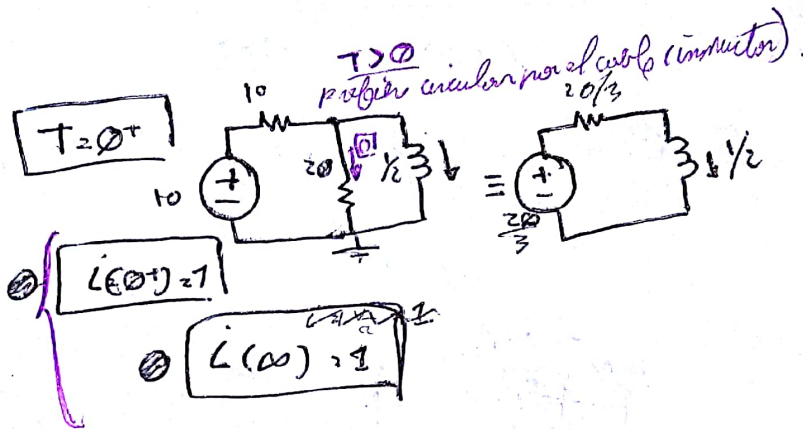 T>0
prefiere circular por el cable (inductor).
10
20/3
T=0⁺
20
0
1/2
1/2
10
+
-
≡
+
-
20/3
i(0⁺)=1
1
i(∞)=1